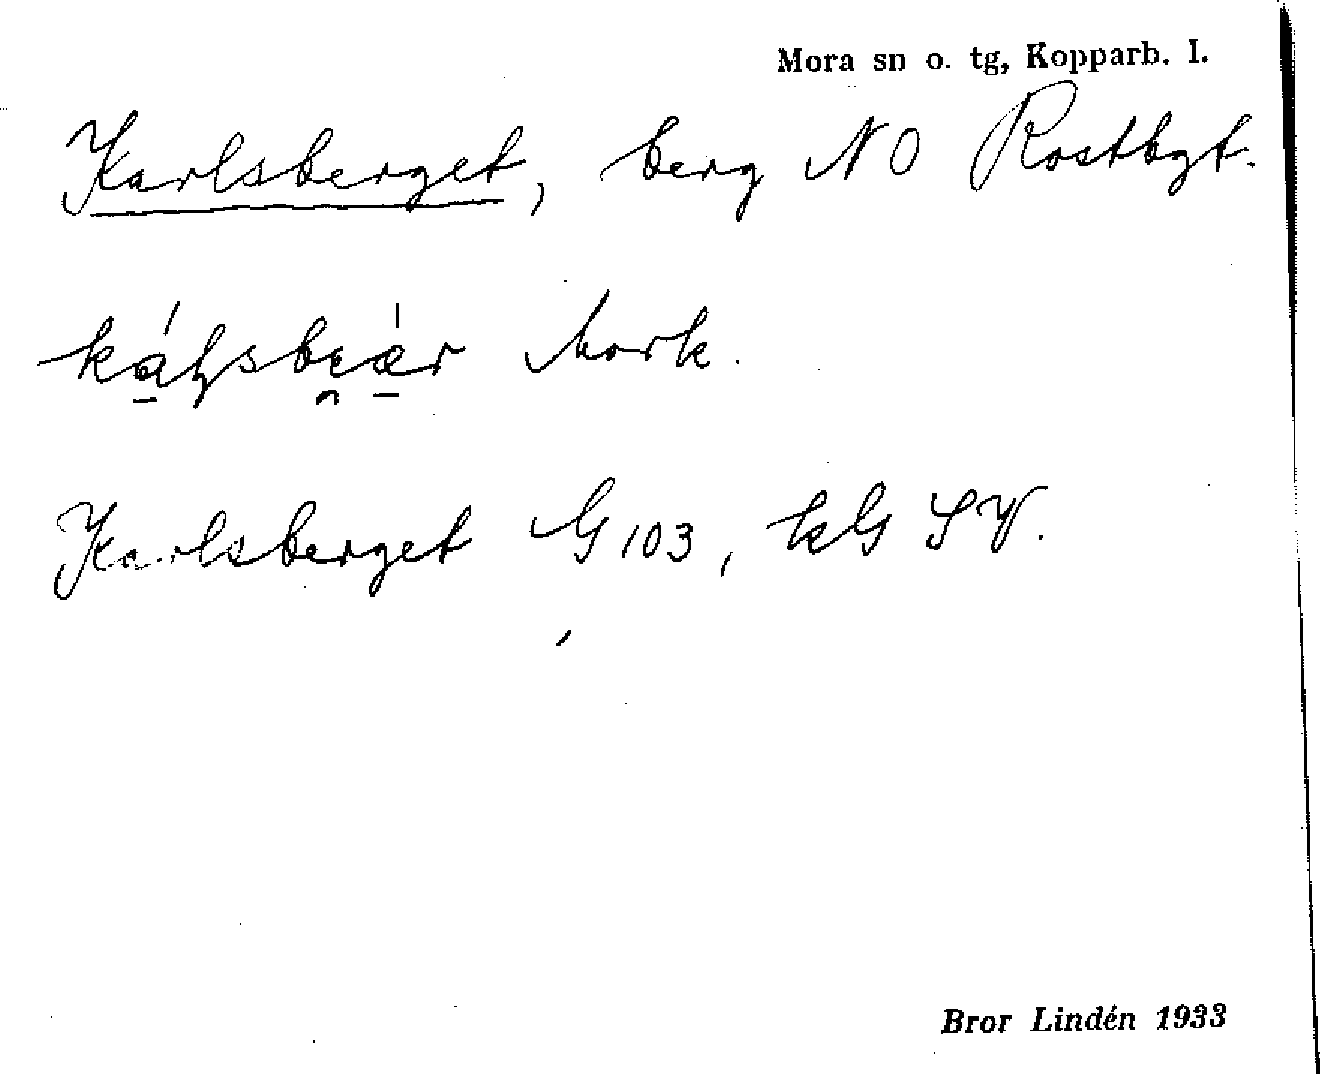 Mora sn o. tg, Kopparb. l.
Karlsberget, berg NO Rostbgt.
Mork.
Karlsberget G 103, kG SV.
Bror Lindén 1933